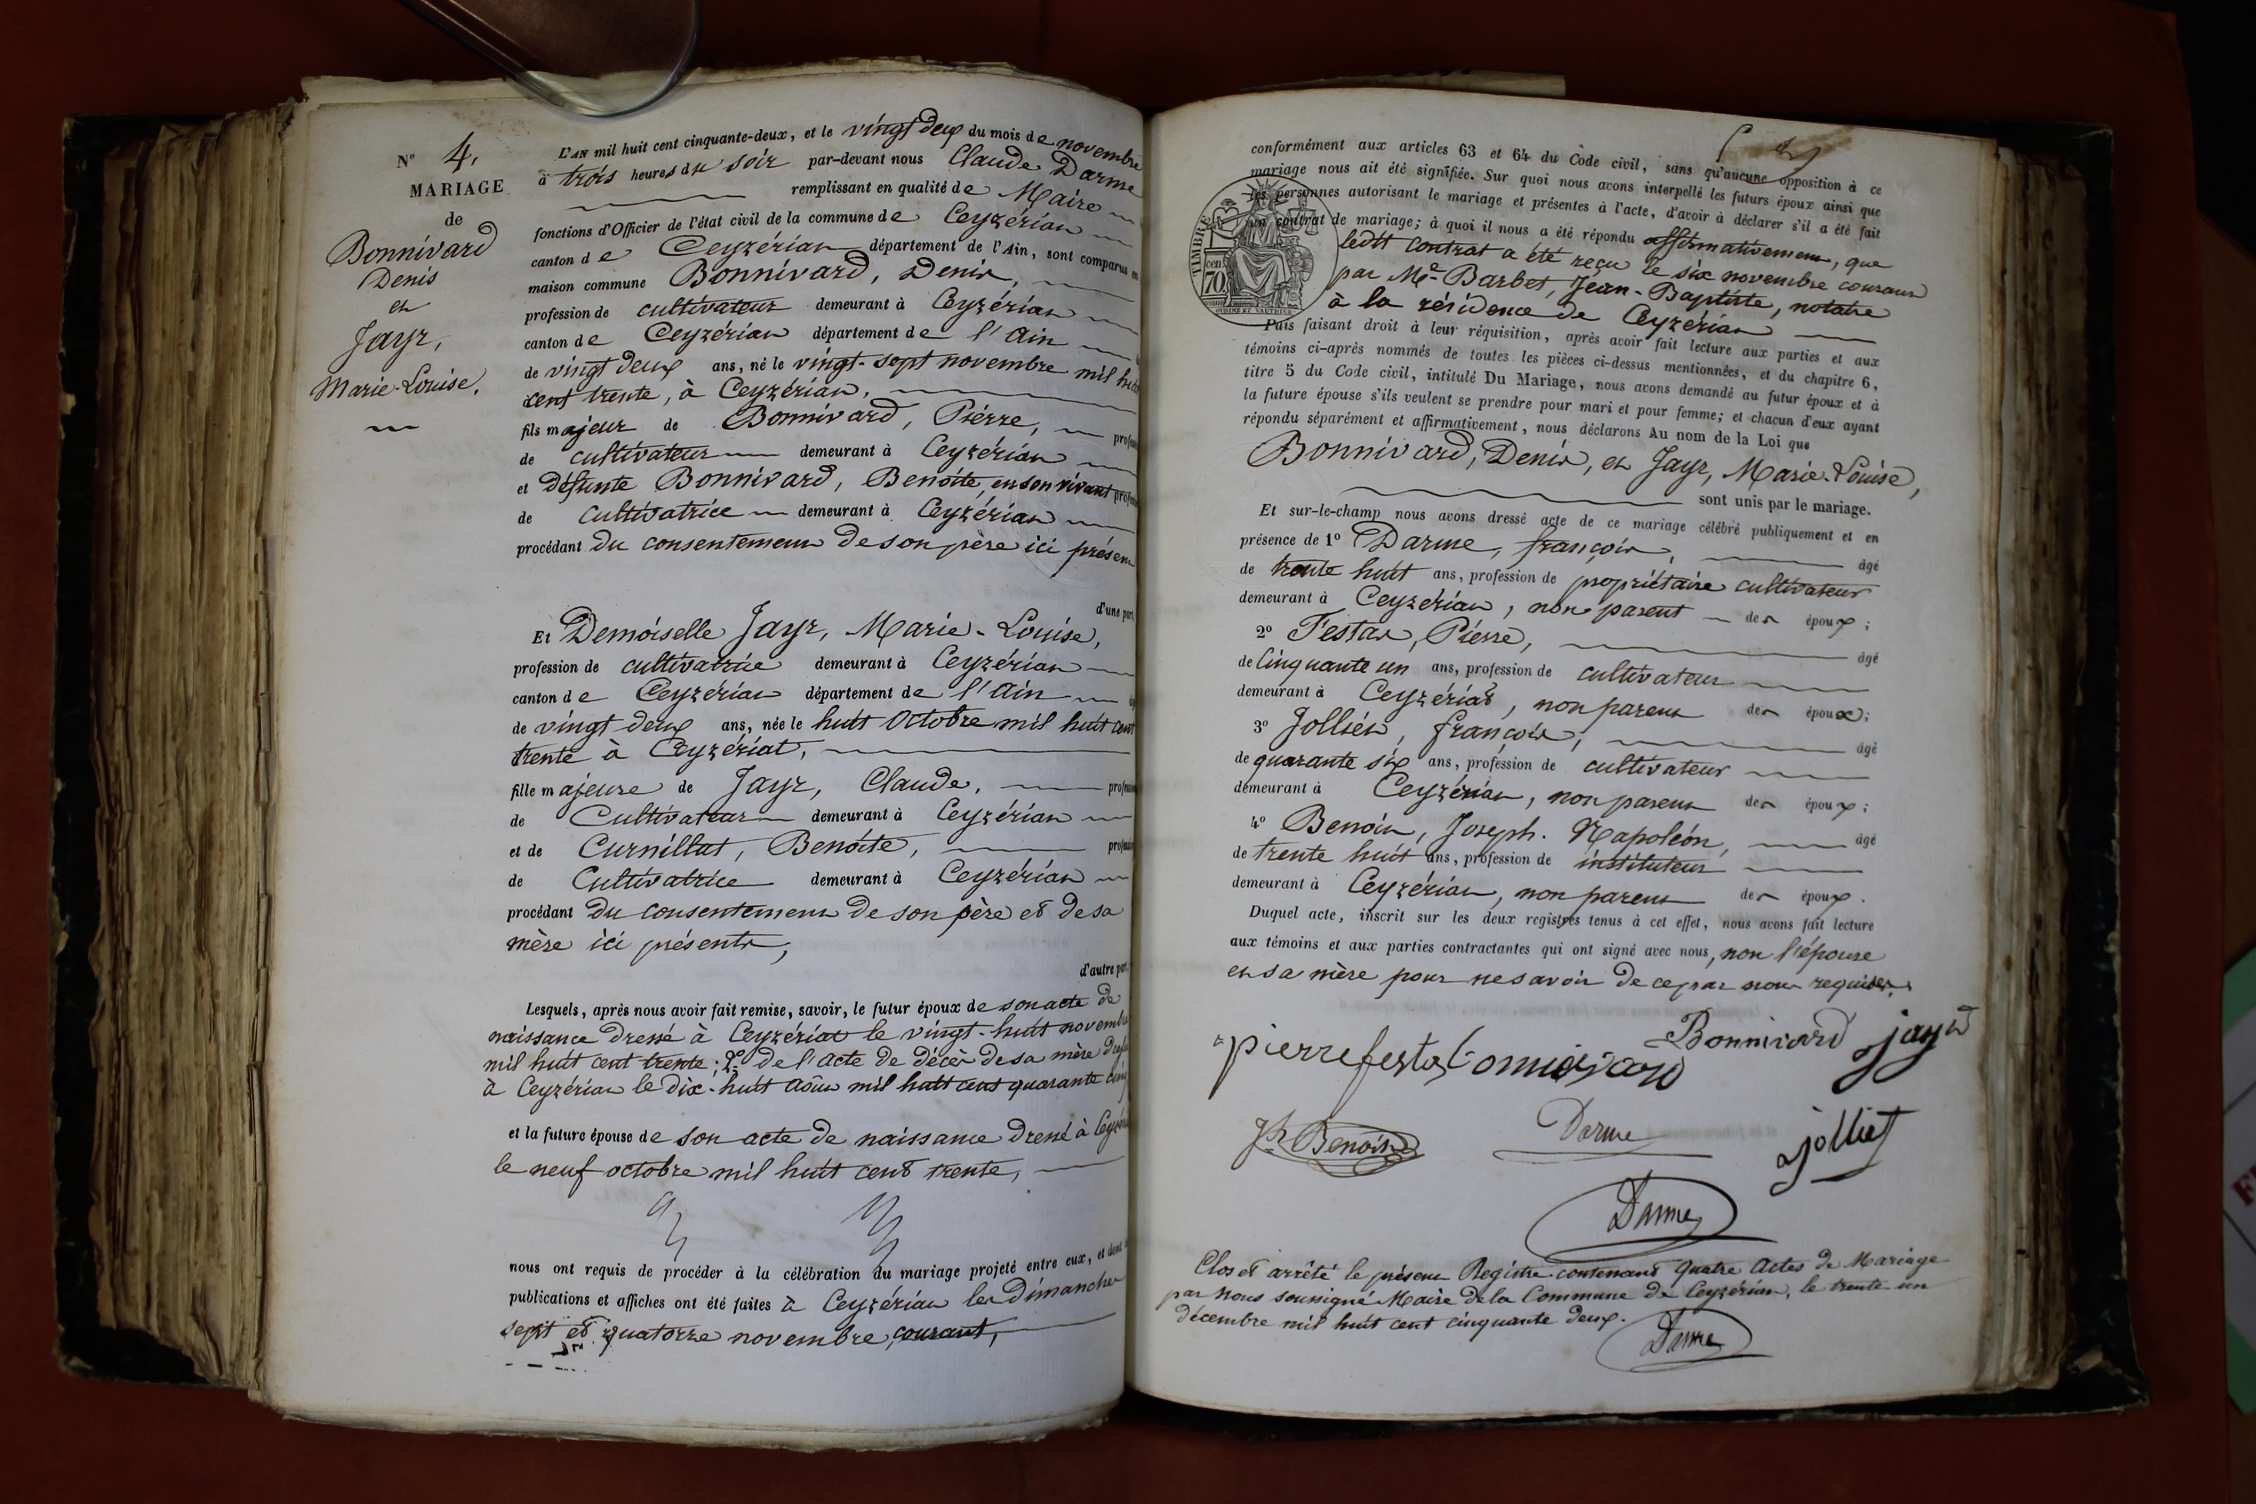 N° 4.
MARIAGE
de
Bonnivard
Denis
et
Jayr,
Marie-Louise,
L'AN mil huit cent cinquante-deux, et le vingt deux du mois de novembre
à trois heures du soir par-devant nous Claude Darme
remplissant en qualité de Maire
fonctions d'Officier de l'état civil de la commune de Ceyzériat
canton de Ceyzériat département de l'Ain, sont comparus en
maison commune Bonnivard, Denis,
profession de cultivateur demeurant à Ceyzériat
canton de Ceyzériat département de l'Ain
de vingt deux ans, né le vingt-sept novembre mil huit
cent trente, à Ceyzériat,
fils majeur de Bonnivard, Pierre,
de cultivateur demeurant à Ceyzériat
et défunte Bonnivard, Benoîte, en son vivant
de cultivatrice demeurant à Ceyzériat
procédant du consentement de son père ici présent
d'une part,
Et Demoiselle Jayr, Marie-Louise,
profession de cultivatrice demeurant à Ceyzériat
canton de Ceyzériat département de l'Ain
de vingt deux ans, née le huit Octobre mil huit cent
trente à Ceyzériat,
fille majeure de Jayr, Claude,
de Cultivateur demeurant à Ceyzériat
et de Curnillat, Benoîte,
de Cultivatrice demeurant à Ceyzériat
procédant du consentement de son père et de sa
mère ici présents,
d'autre part.
Lesquels, après nous avoir fait remise, savoir, le futur époux de son acte de
naissance dressé à Ceyzériat le vingt-huit novembre
mil huit cent trente; 2° de l'acte de décès de sa mère dressé
à Ceyzériat le dix-huit août mil huit cent quarante cinq
et la future épouse de son acte de naissance dressé à Ceyzériat
le neuf octobre mil huit cent trente,
nous ont requis de procéder à la célébration du mariage projeté entre eux, et dont
publications et affiches ont été faites à Ceyzériat les Dimanches
sept et quatorze novembre courant,
conformément aux articles 63 et 64 du Code civil, sans qu'aucune opposition à ce
mariage nous ait été signifiée. Sur quoi nous avons interpellé les futurs époux ainsi que
les personnes autorisant le mariage et présentes à l'acte, d'avoir à déclarer s'il a été fait
un contrat de mariage; à quoi il nous a été répondu affirmativement, que
ledit contrat a été reçu le six novembre courant
par Me Barbet, Jean-Baptiste, notaire
à la résidence de Ceyzériat
TIMBRE
70 cen
Puis faisant droit à leur réquisition, après avoir fait lecture aux parties et aux
témoins ci-après nommés de toutes les pièces ci-dessus mentionnées, et du chapitre 6,
titre 5 du Code civil, intitulé Du Mariage, nous avons demandé au futur époux et à
la future épouse s'ils veulent se prendre pour mari et pour femme; et chacun d'eux ayant
répondu séparément et affirmativement, nous déclarons Au nom de la Loi que
Bonnivard, Denis, et Jayr, Marie-Louise,
sont unis par le mariage.
Et sur-le-champ nous avons dressé acte de ce mariage célébré publiquement et en
présence de 1° Darme, françois, âgé
de trente huit ans, profession de propriétaire cultivateur
demeurant à Ceyzériat, non parent des époux;
2° Festas, Pierre, âgé
de Cinquante un ans, profession de cultivateur
demeurant à Ceyzériat, non parent des époux;
3° Jolliet, françois, âgé
de quarante six ans, profession de cultivateur
demeurant à Ceyzériat, non parent des époux;
4° Benoit, Joseph-Napoléon, âgé
de trente huit ans, profession de instituteur
demeurant à Ceyzériat, non parent des époux.
Duquel acte, inscrit sur les deux registres tenus à cet effet, nous avons fait lecture
aux témoins et aux parties contractantes qui ont signé avec nous, non l'épouse
et sa mère pour ne savoir de ce par nous requises.
pierre festas Bonnivard Bonnivard jayr
Jh Benoit Darme jolliet
Darme
Clos et arrêté le présent Registre contenant quatre actes de Mariage
par nous soussigné Maire de la Commune de Ceyzériat, le trente un
décembre mil huit cent cinquante deux.
Darme